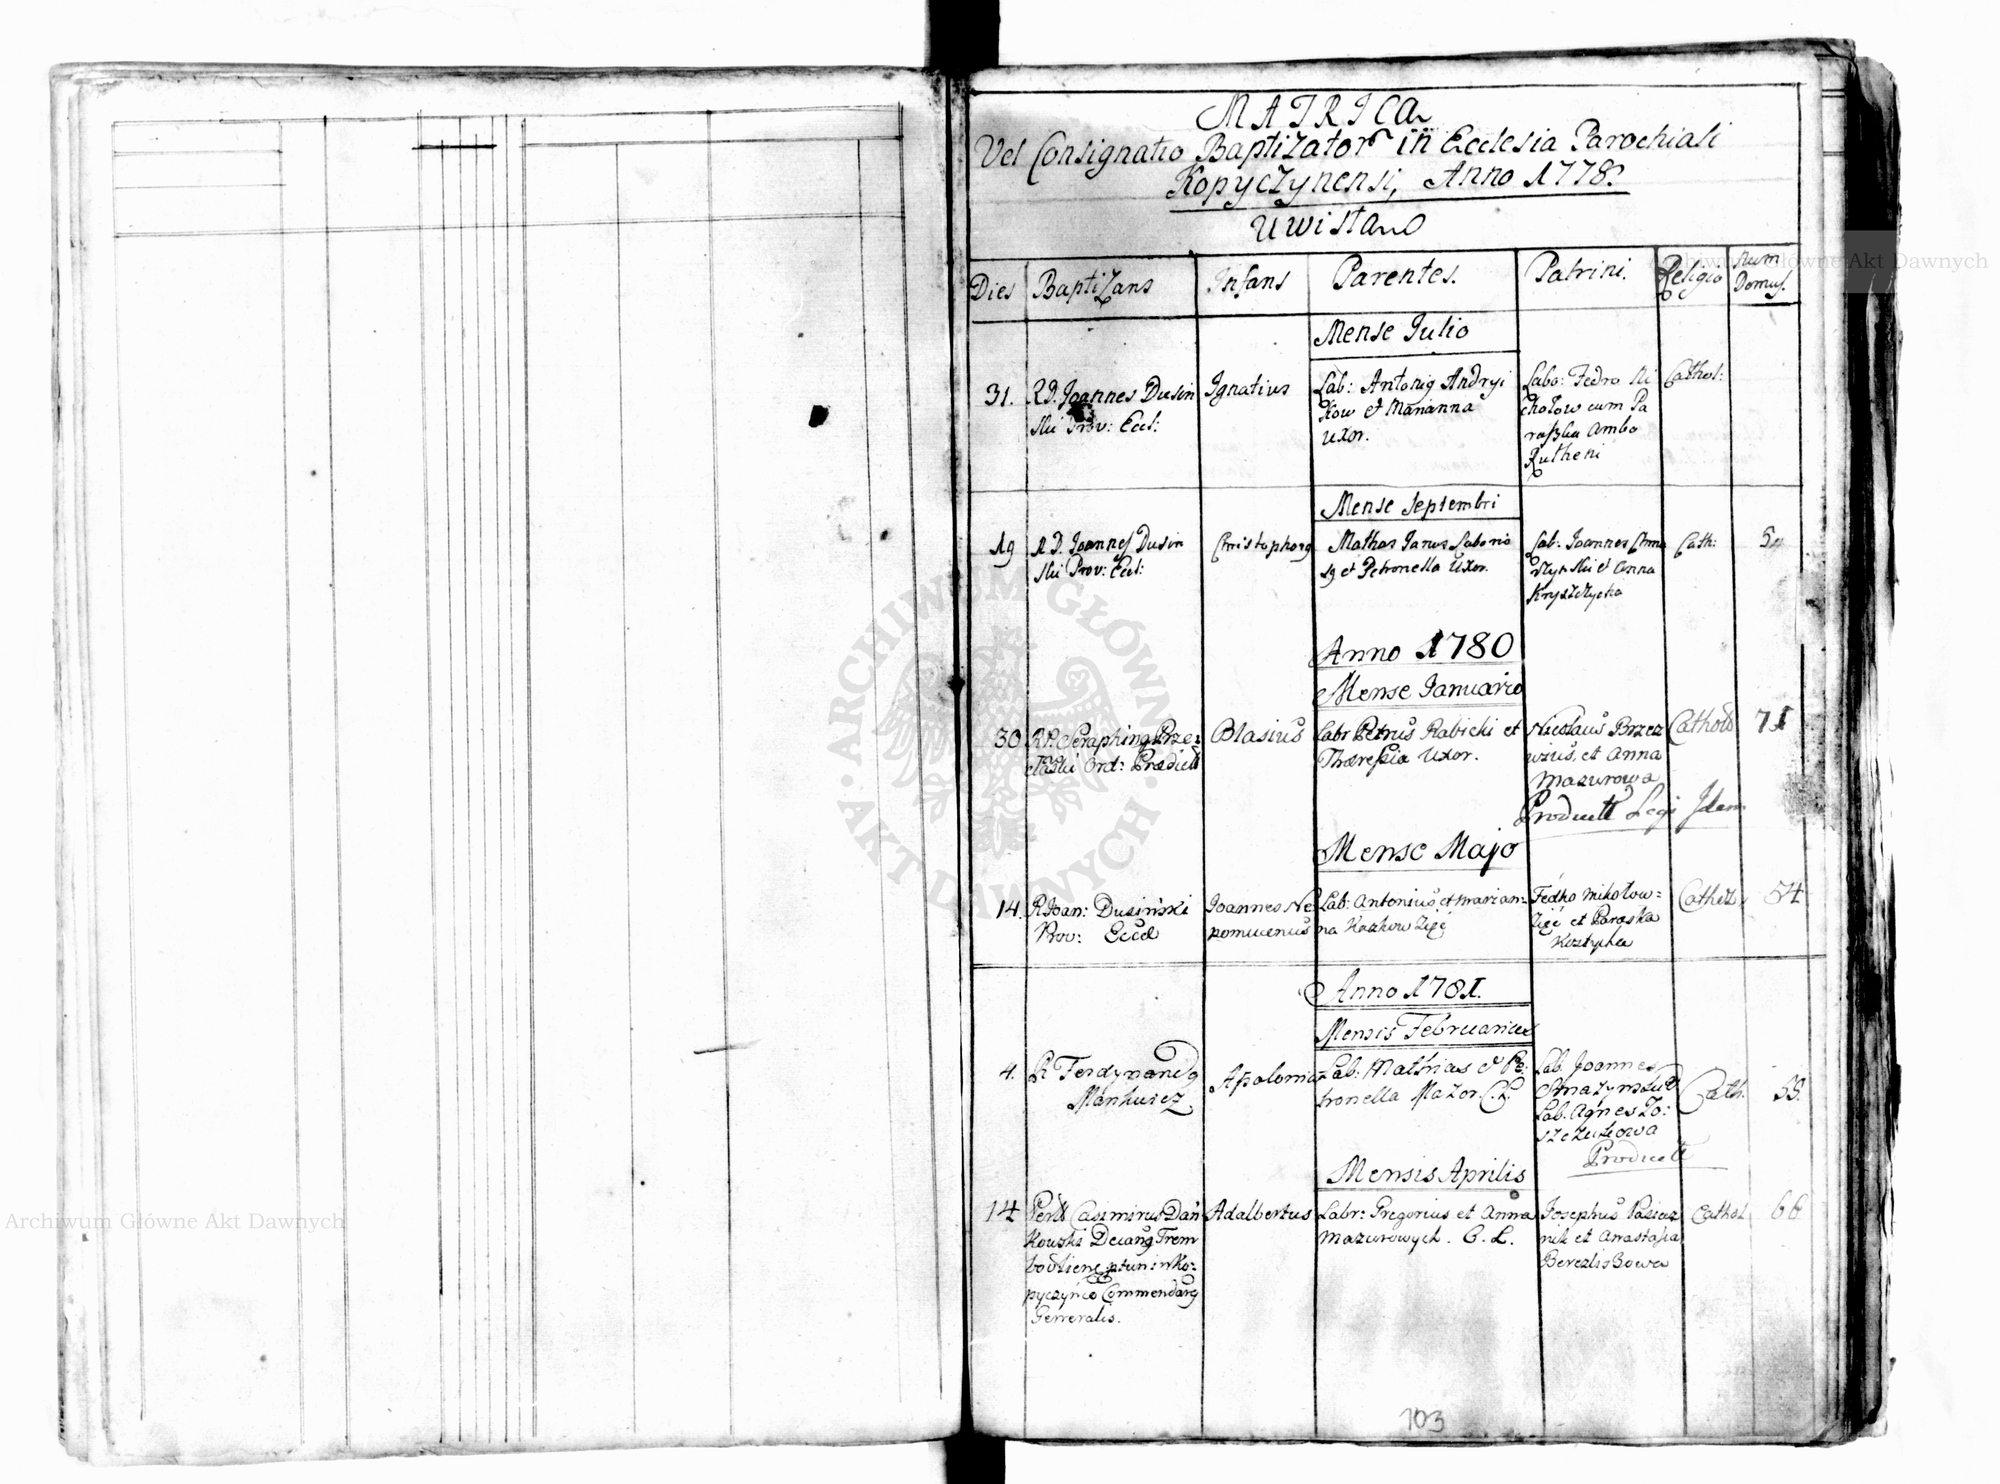 MATRICA
Vel Consignatio Baptizator in Ecclesia Parochiali
Kopyczynensi, Anno 1778.
Uwisła
Dies Baptizans Infans Parentes. Patrini. Religio Num Domus.
Mense Julio
31. R.D. Joannes Dusin
ski Prov: Eccl:
Ignatius
Lab: Antonig Andryi
kow et Marianna
Uxor.
Labo: Fedro Ni
chołow cum Pa
raszka Ambo
Rutheni
Cathol:
Mense Septembri
19 R.D. Joannes Dusin
ski Prov: Eccl:
Christophorg
Mathas Janus Laborio
sg et Petronella Uxor.
Lab: Joannes
et Anna
Cath:
54
Anno 1780
Mense Januario
30 R.P. Seraphing Prze
Ord: Praedict
Blasius
Labr Petrus Rabicki et
Theressia Uxor.
Nicolaus Brzez
et Anna
Mazurowa
Cathol
71
Mense Majo
14. R. Joan: Dusinski
Prov: Eccl
Joannes Ne
pomucenus
Lab: Antonius et Marian=
na
Fedko Mikołow=
et Paraska
54
Anno 1781.
Mensis Februarius
4. R Ferdynandg
Apolonia
Lab: Mathias & Pe:
tronella Mazor. C. L.
Lab. Joannes
Lab. Agnes
Cath.
Mensis Aprilis
14 Casimirus Dań
kowski Decang Trem
pyczyńce Commendarg
Generalis.
Adalbertus
Labr: Gregorius et Anna
Mazurowych. C. L.
Josephus Pasiecz
nik et Anastasia
Cathol
66
103
ARCHIWUM GŁÓWNE AKT DAWNYCH
Archiwum Główne Akt Dawnych
Archiwum Główne Akt Dawnych